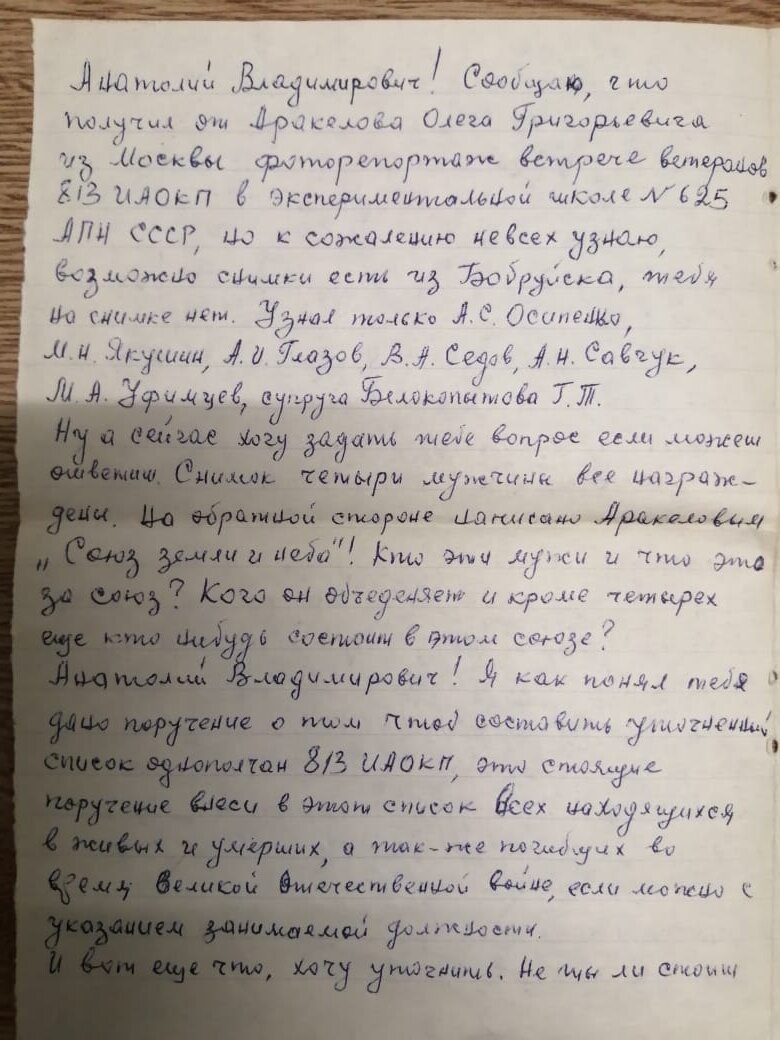 Анатолий Владимирович! Сообщаю, что
получил от Аракелова Олега Григорьевича
из Москвы фоторепортаж встрече ветеранов
813 ИАОКП в экспериментальной школе № 625
АПН СССР, но к сожалению невсех узнаю,
возможно снимки есть из Бобруйска, тебя
на снимке нет. Узнал только А.С. Осипенко,
М.Н. Якушин, А.И. Глазов, В.А. Седов, А.Н. Савчук,
М.А. Уфимцев, супруга Белокопытова Г.Т.
Ну а сейчас хочу задать тебе вопрос если можеш
ответиш. Снимок четыри мужчины все награж-
дены. На обратной стороне написано Аракеловым
„Союз земли и неба"! Кто эти мужи и что это
за союз? Кого он обчеденяет и кроме четырех
еще кто нибудь состоит в этом союзе?
Анатолий Владимирович! Я как понял тебе
дано поручение о том чтоб составить уточненный
список однополчан 813 ИАОКП, это стоящие
поручение внеси в этот список Всех находящихся
в живых и умерших, а так-же погибших во
время Великой Отечественной войне, если можно с
указанием занимаемой должности.
И вот еще что, хочу уточнить. Не ты ли стоиш